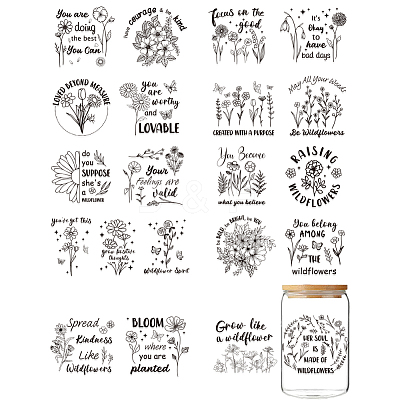 You are
doing
the best
You Can
Have courage & be kind
Focus on the
good
It's
Okay
to
have
bad days
LOVED BEYOND MEASURE
you
are
worthy
and
LOVABLE
CREATED WITH A PURPOSE
May All Your Weeds
Be Wildflowers
do
you
SUPPOSE
she's
a
WILDFLOWER
Your
Feelings are
Valid
You Become
what you believe
RAISING
WILDFLOWERS
You've got this
grow positive
thoughts
Wildflower Spirit
BE BOLD, BE BRIGHT, BE YOU
You belong
AMONG
THE
wildflowers
Spread
Kindness
Like
Wildflowers
BLOOM
where
you are
planted
Grow like
a wildflower
HER SOUL
IS
MADE OF
WILDFLOWERS